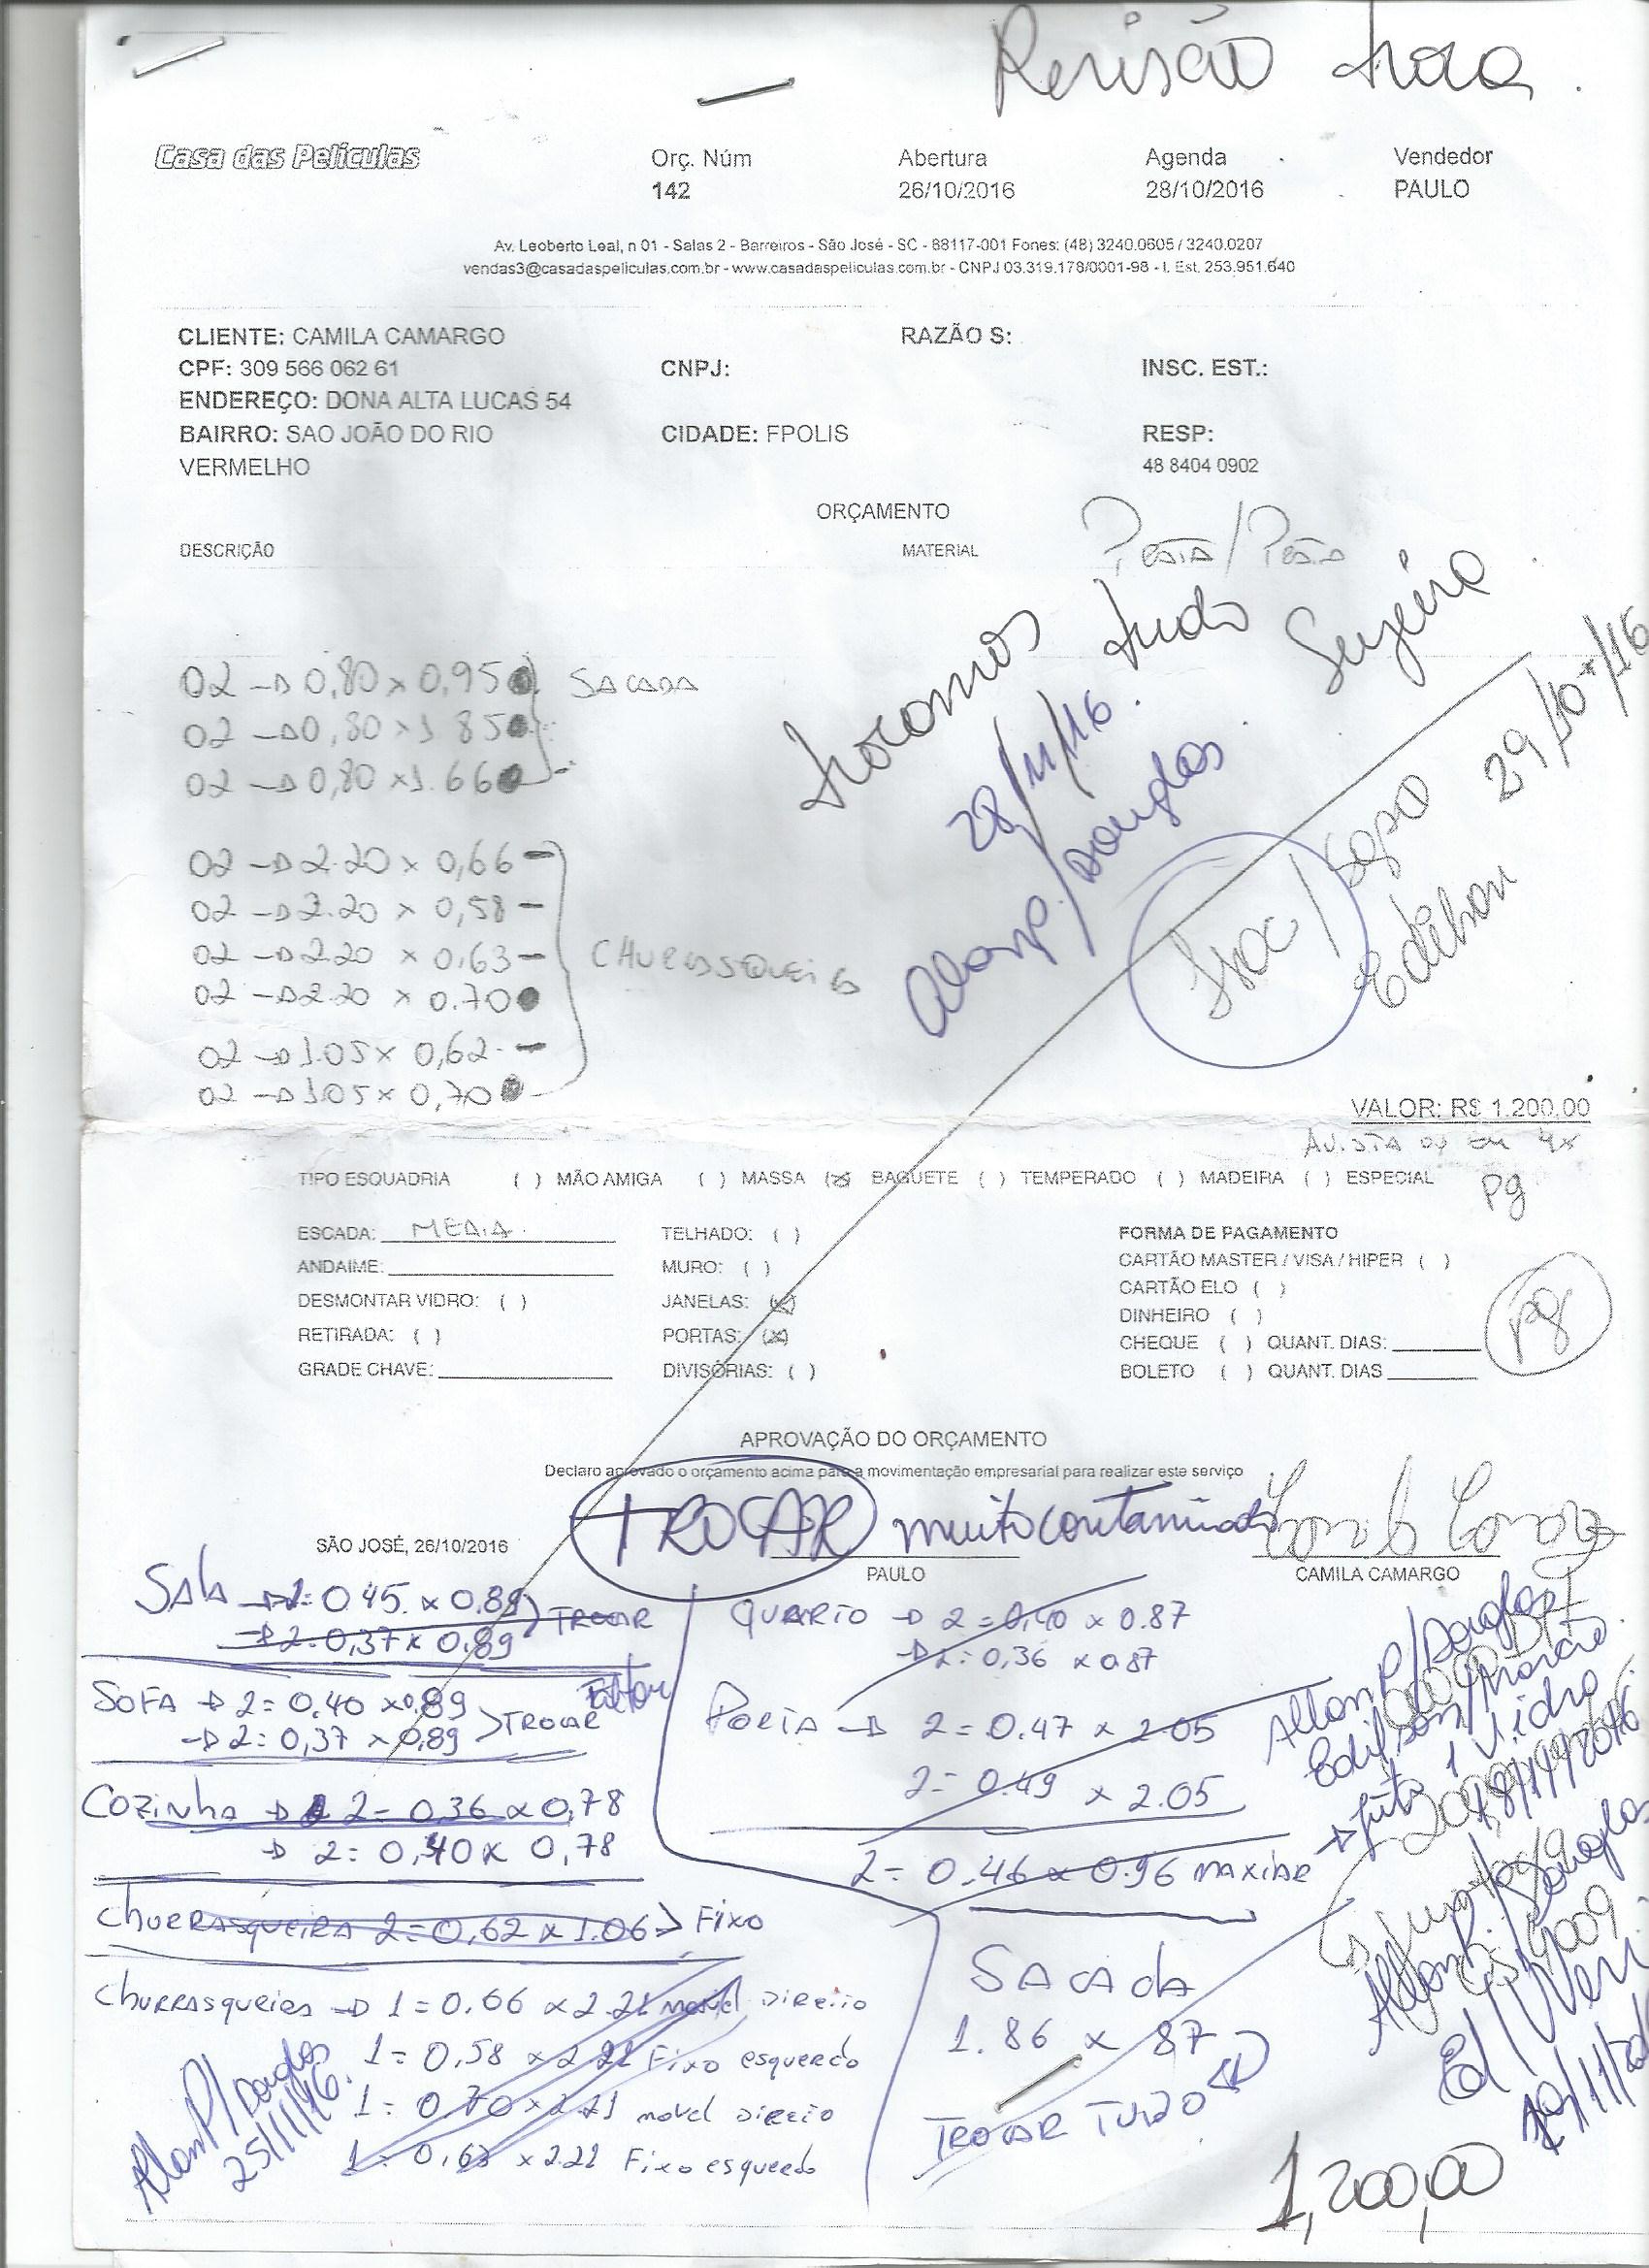 Revisão
Casa das Películas
Orç. Núm Abertura Agenda Vendedor
142 26/10/2016 28/10/2016 PAULO
Av. Leoberto Leal, n 01 - Salas 2 - Barreiros - São José - SC - 88117-001 Fones: (48) 3240.0605 / 3240.0207
vendas3@casadaspeliculas.com.br - www.casadaspeliculas.com.br - CNPJ 03.319.178/0001-98 - I. Est. 253.951.640
CLIENTE: CAMILA CAMARGO RAZÃO S:
CPF: 309 566 062 61 CNPJ: INSC. EST.:
ENDEREÇO: DONA ALTA LUCAS 54
BAIRRO: SAO JOÃO DO RIO CIDADE: FPOLIS RESP:
VERMELHO 48 8404 0902
ORÇAMENTO
DESCRIÇÃO MATERIAL
trocamos tudo Sujeira
28/11/16.
29/10/16
Edilson
02 → 0,80 x 0,95 SACADA
02 → 0,80 x 1.85
02 → 0,80 x 1.66
02 → 2.20 x 0,66 -
02 → 2.20 x 0,58 -
02 → 2.20 x 0,63 -
02 → 2.20 x 0.70
CHURRASQUEIRA
02 → 1.05 x 0,62 -
02 → 1.05 x 0,70
VALOR: R$ 1.200,00
AVISTA ou em 4x
pg
TIPO ESQUADRIA ( ) MÃO AMIGA ( ) MASSA (x) BAGUETE ( ) TEMPERADO ( ) MADEIRA ( ) ESPECIAL
ESCADA: MEDIA TELHADO: ( ) FORMA DE PAGAMENTO
ANDAIME: MURO: ( ) CARTÃO MASTER / VISA / HIPER ( )
DESMONTAR VIDRO: ( ) JANELAS: (x) CARTÃO ELO ( )
RETIRADA: ( ) PORTAS: (x) DINHEIRO ( )
GRADE CHAVE: DIVISÓRIAS: ( ) CHEQUE ( ) QUANT. DIAS:
BOLETO ( ) QUANT. DIAS
pg
APROVAÇÃO DO ORÇAMENTO
Declaro aprovado o orçamento acima para a movimentação empresarial para realizar este serviço
TROCAR muito contaminado
SÃO JOSÉ, 26/10/2016
PAULO CAMILA CAMARGO
Sala → 2= 0.45. x 0.89
→ 2= 0,37 x 0,89 TROCAR
SOFA → 2= 0.40 x 0.89
→ 2= 0,37 x 0,89 > TROCAR
Cozinha → 2= 0.36 x 0,78
→ 2= 0,40 x 0,78
CHURRASQUEIRA 2= 0,62 x 1.06 > Fixo
CHURRASQUEIRA → 1= 0.66 x 2.21 movel DIREITO
1= 0,58 x 2.21 Fixo esquerdo
1= 0,70 x 2.21 movel DIREITO
1= 0,63 x 2.21 Fixo esquerdo
25/11/16.
QUARTO → 2= 0,40 x 0.87
→ 2= 0,36 x 0.87
PORTA → 2= 0.47 x 2.05
2= 0.49 x 2.05
2= 0.46 x 0.96 MAXIAR
SACADA
1.86 x 87
TROCAR TUDO
1 Vidro
1,200,00